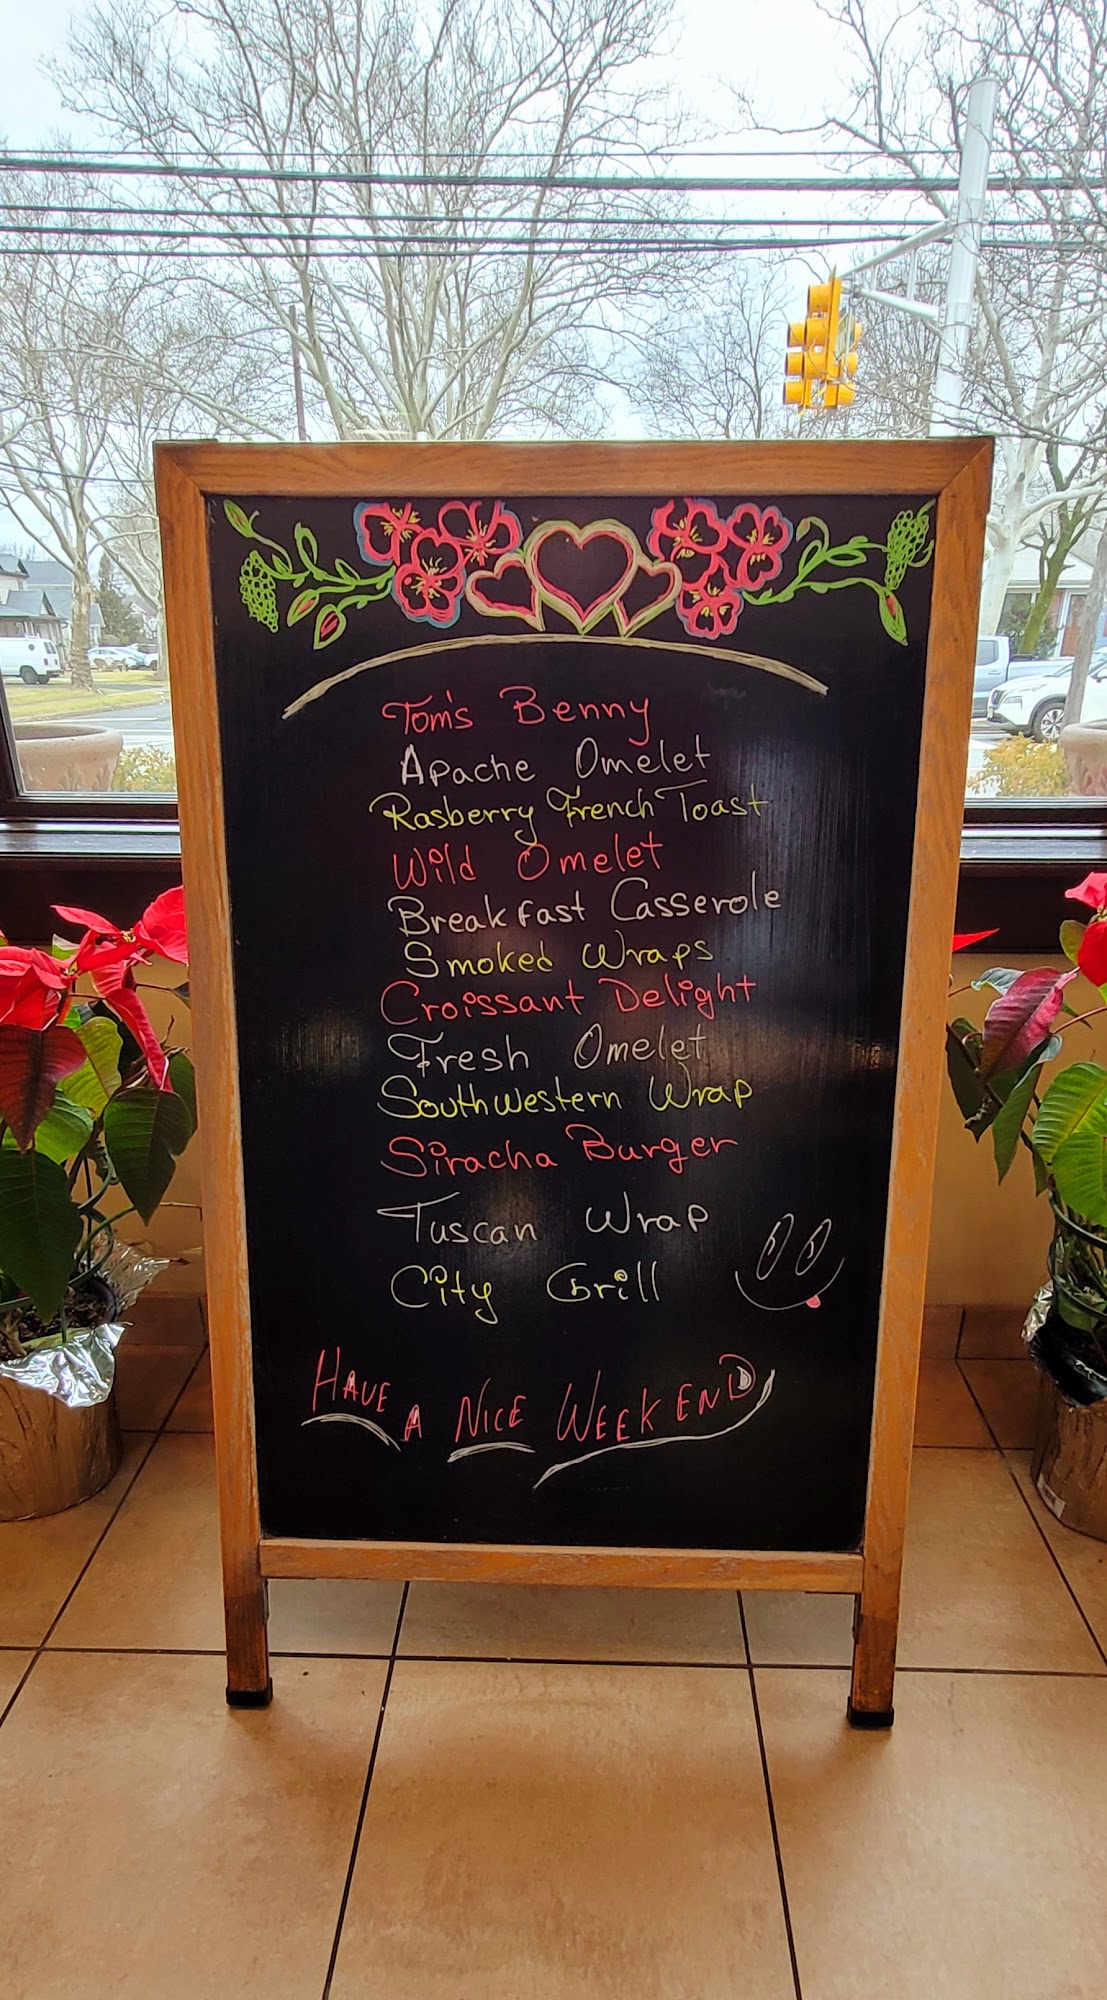 Tom's Benny
Apache Omelet
Rasberry French Toast
Wild Omelet
Breakfast Casserole
Smoked Wraps
Croissant Delight
Fresh Omelet
Southwestern Wrap
Siracha Burger
Tuscan Wrap
City Grill
HAVE A NICE WEEKEND